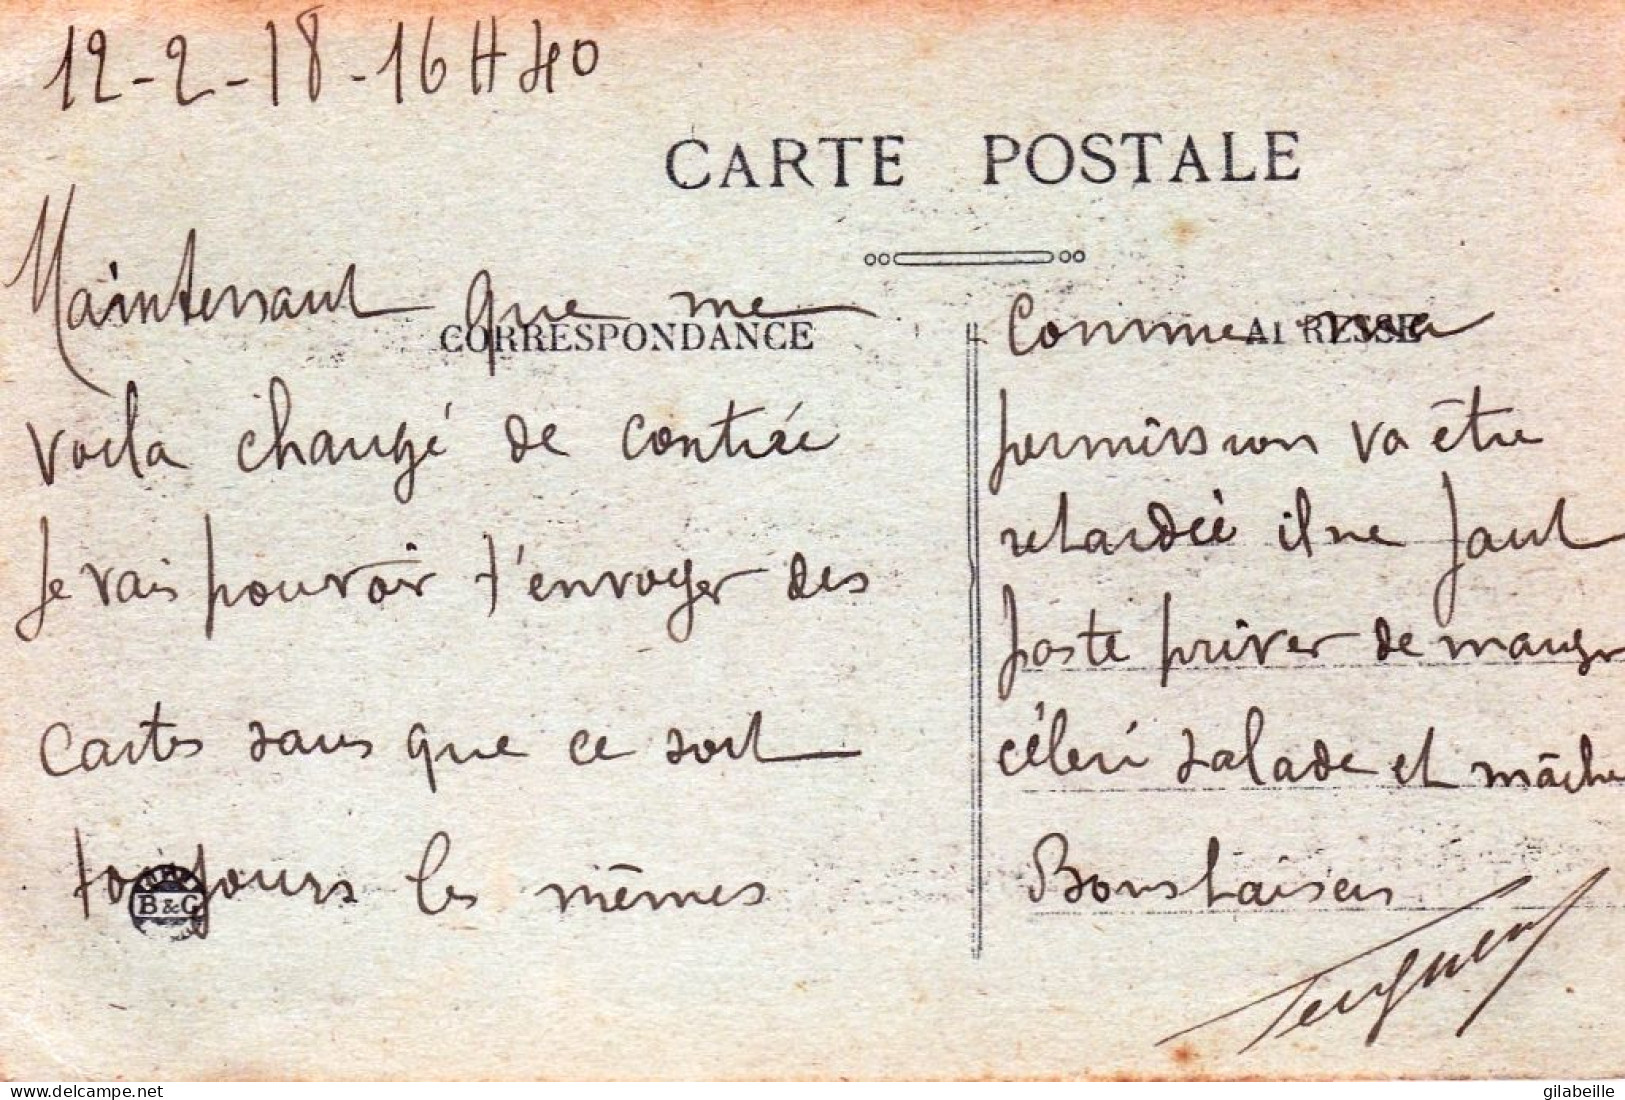 12-2-18-16H40
CARTE POSTALE
CORRESPONDANCE
Maintenant que me
voila changé de contrée
je vais pouvoir t'envoyer des
cartes sans que ce soit
toujours les mêmes
B&G
ADRESSE
Comme ma
permission va être
retardée il ne faut
pas te priver de manger
céleri salade et mâche
Bons baisers
delcampe.net
gilabeille